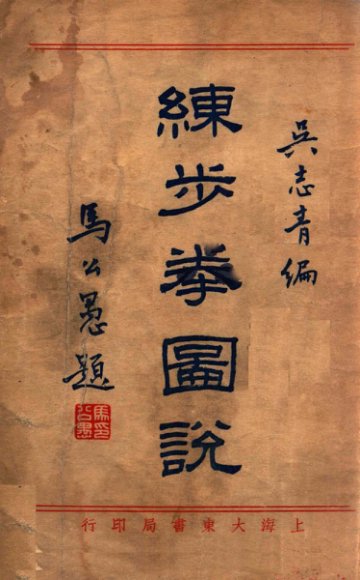 吳志青編
練步拳圖說
馬公愚題
馬公愚印
上海大東書局印行